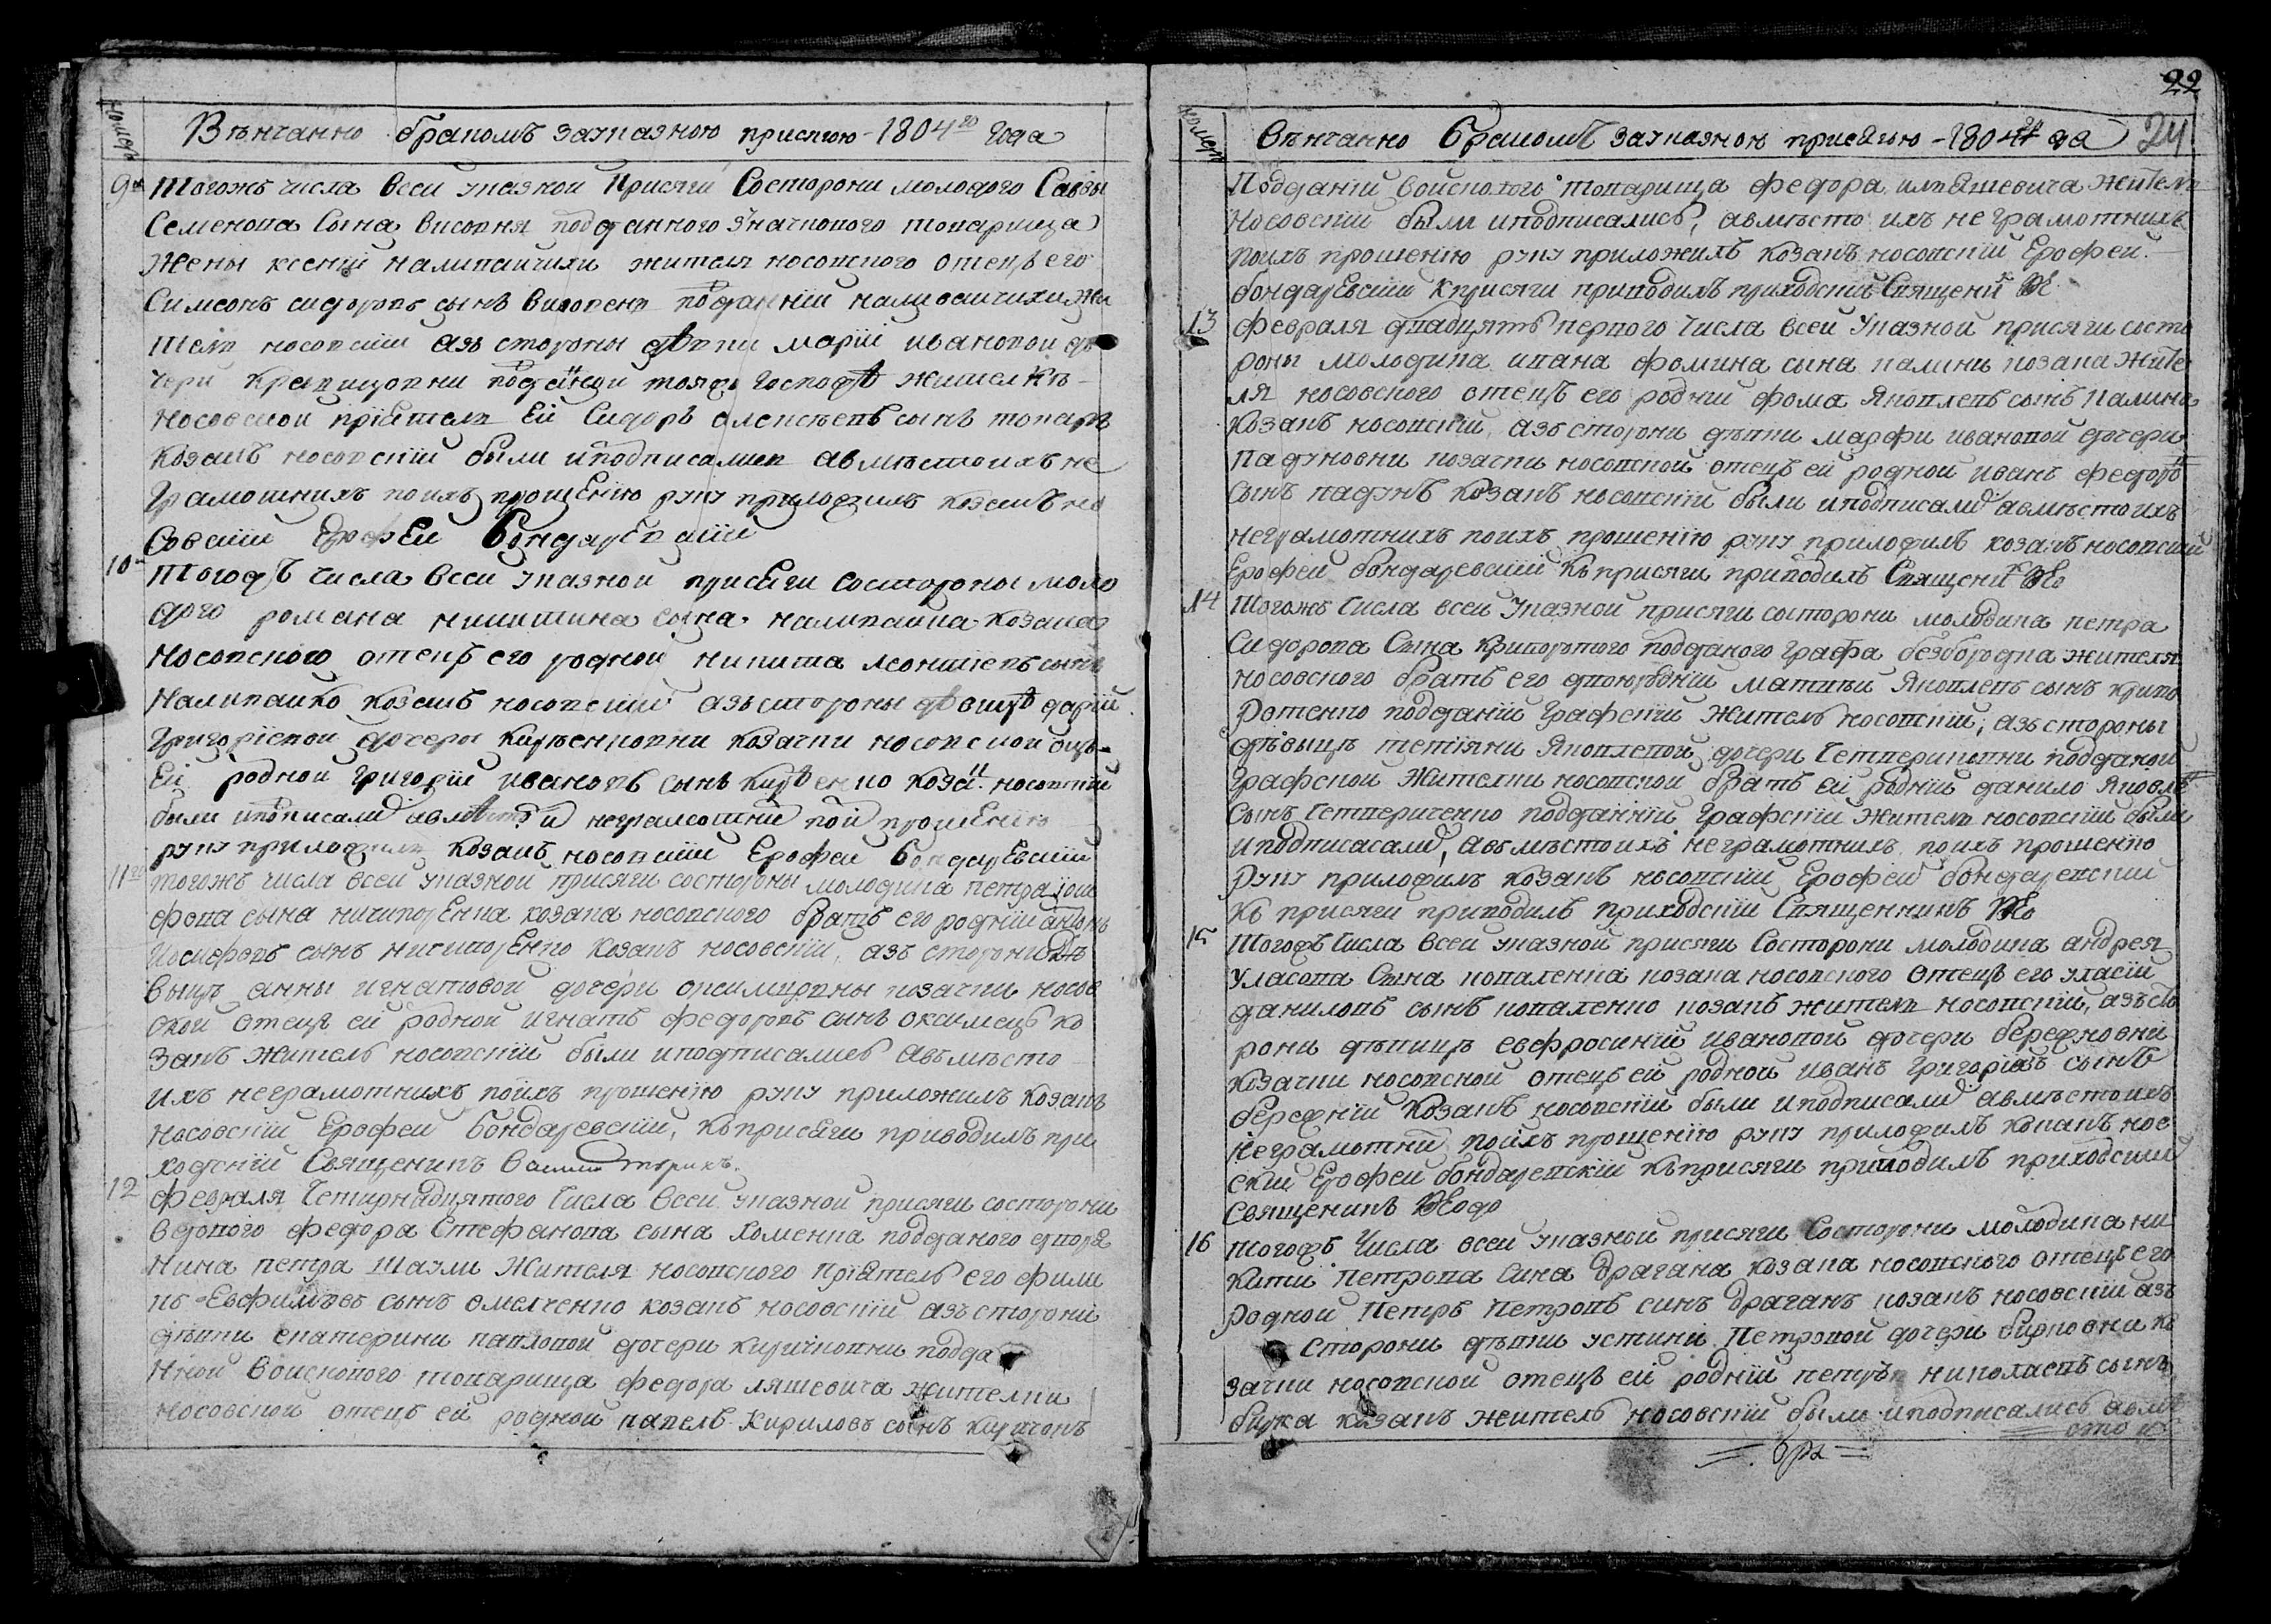 номеръ
Вѣнчанно бракомъ зауказною присягою - 1804го года
9й тогожъ числа всеи указной присяги состорони молодого Саввы
Семенова сына висовня подданного Значкового товарища
жены ксеніи наливайчихи жителя носовского отецъ его
Симеонъ сидоровъ сынъ висовень подданній наливайчихи жи
тель носовскій азъ стороны дѣвки маріи ивановой до
чери подданки тояжъ господѣ жителкѣ
носовской пріятель ей Сидоръ алексѣевъ сынъ
козакъ носовскій были иподписались авмѣсто ихъ не
грамотнихъ поихъ прошенію руку приложилъ козакъ но
совскій Ерофей Бондаревскій
10 тогожъ числа всеи указной присяги состороны моло
дого романа никитина сына наливайка козака
носовского отецъ его родной никита леонтіевъ сынъ
наливайко козакъ носовскій азъ стороны дѣвицѣ даріи
григоріевой дочеры киръенковни козачки носовской оцъ
ей родной григорій ивановъ сынъ кирѣенко коза носовскій
были иподписали авмѣсто и неграмотни пои прошенію
руку приложилъ козакъ носовскій Ерофей Бондаревскій
11 тогожъ числа всей указной присяги состороны молодика петра йоси
фова сына ничипоренка козака носовского братъ его родній антонъ
иосифовъ сынъ ничипоренко козакъ носовскій, азъ сторони дѣ
вицѣ анны игнатовой дочери козачки носов
ской отецъ ей родной игнатъ федоровъ сынъ оксимецъ ко
закъ житель носовскій были иподписались авъмѣсто
ихъ неграмотнихъ поихъ прошенію руку приложилъ козакъ
носовскій Ерофей Бондаревскій, къприсяги приводилъ при
ходскій Священикъ
12 февраля четирнадцятого числа всеи указной присяги состорони
вдового федора Стефанова сына хоменка подданого
петра жителя носовского пріятель его фили
пъ Евфимовъ сынъ омелченко козакъ носовскій азъ сторони
дѣвки екатерини павловой дочери киричковни подда
нной войскового товарища федора ляшевича жителки
носовской отецъ ей родной павелъ Кириловъ сынъ
22
номеръ
вѣнчанно Бракомъ зауказною присягою - 1804 да 24
Подданій войскового товарища федора ляшевича жители
носовскій были иподписались, авмѣсто ихъ неграмотнихъ
поихъ прошенію руку приложилъ козакъ носовскій Ерофей
бондаревскій Кприсяги приводилъ приходскій Священи
13 февраля двадцять первого числа всеи указной присяги состо
роны молодика ивана фомина сына калини козака жите
ля носовского отецъ его родній фома яковлевъ сынъ калина
козакъ носовскій, азъ сторони дѣвки марфи ивановой дочери
падуновни козачки носовской отецъ ей родной иванъ федоро
сынъ падунъ козакъ носовскій были иподписали авмѣсто ихъ
неграмотнихъ поихъ прошенію руку приложилъ козакъ носовскій
Ерофей бондаревскій Къ присяги приводилъ Священи
14 тогожъ числа всеи указной присяги состорони молодика петра
Сидорова сына криворотого подданого графа безбородка жителя
носовского братъ его двоюродній матвѣй яковлевъ сынъ криво
ротенко подданій графскій житель носовскій, азъ стороны
дѣвицѣ тетіяни яковлевой дочери подданой
графской жителки носовской братъ ей родній данило яковле
сынъ подданній графскій житель носовскій были
иподписасали, авъмѣсто ихъ неграмотнихъ, поихъ прошенію
руку приложилъ козакъ носовскій Ерофей бондаревскій
къ присяги приводилъ приходскій Священникъ
15 тогожъ числа всеи указной присяги состорони молодика андрея
уласова сына коваленка козака носовского отецъ его уласій
даниловъ сынъ коваленко козакъ житель носовскій, азъ сто
рони дѣвицѣ евфросиніи ивановой дочери бережновни
козачки носовской отецъ ей родной иванъ григоріевъ сынъ
бережній козакъ носовскій были иподписали авмѣсто ихъ
неграмотни поихъ прошенію руку приложилъ козакъ носов
скій Ерофей бондаревскій къприсяги приводилъ приходскій
священикъ
16 тогожъ числа всеи указной присяги состорони молодика ни
кити Петрова сина драгана козака носовского отецъ его
родной Петръ Петровъ синъ драганъ козакъ носовскій азъ
сторони дѣвки устиніи Петровой дочери бирковни ко
зачки носовской отецъ ей родній петръ николаевъ сынъ
бирка козакъ житель носовскій были иподписались авмѣ
сто и